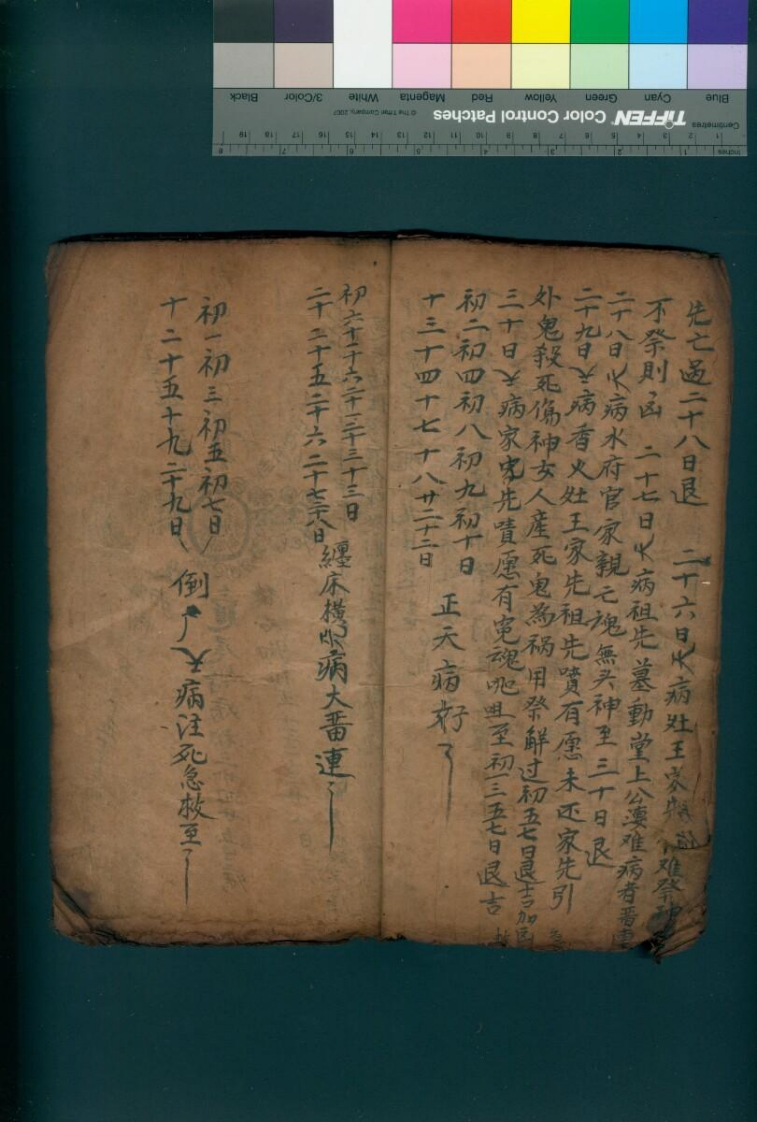 先亡過二十八日退 二十六日火病灶王家
不祭則凶 二十七日火病祖先墓動堂上公婆难病者
二十八日火病水府官家親亡魂無头神至三十日退
二十九日火病香火灶王家先祖先噴有愿未还家先引
外鬼殺死傷神女人産死鬼為祸用祭解过初五七日退
三十日火病家先嘖愿有寃魂咒咀至初一三五七日退吉
初二初四初八初九初十日
十三十四十七十八廿二十二日
正天病好了
初六十六二十一二十三十三日
二十二十五二十六二十七二十八日
纏床横 病大番連
初一初三初五初七日
十二十五十九二十九日
倒了 病注死急救至了
Blue Cyan Green Yellow Red Magenta White 3/Color Black
TIFFEN Color Control Patches
© The Tiffen Company, 2007
Centimetres
Inches